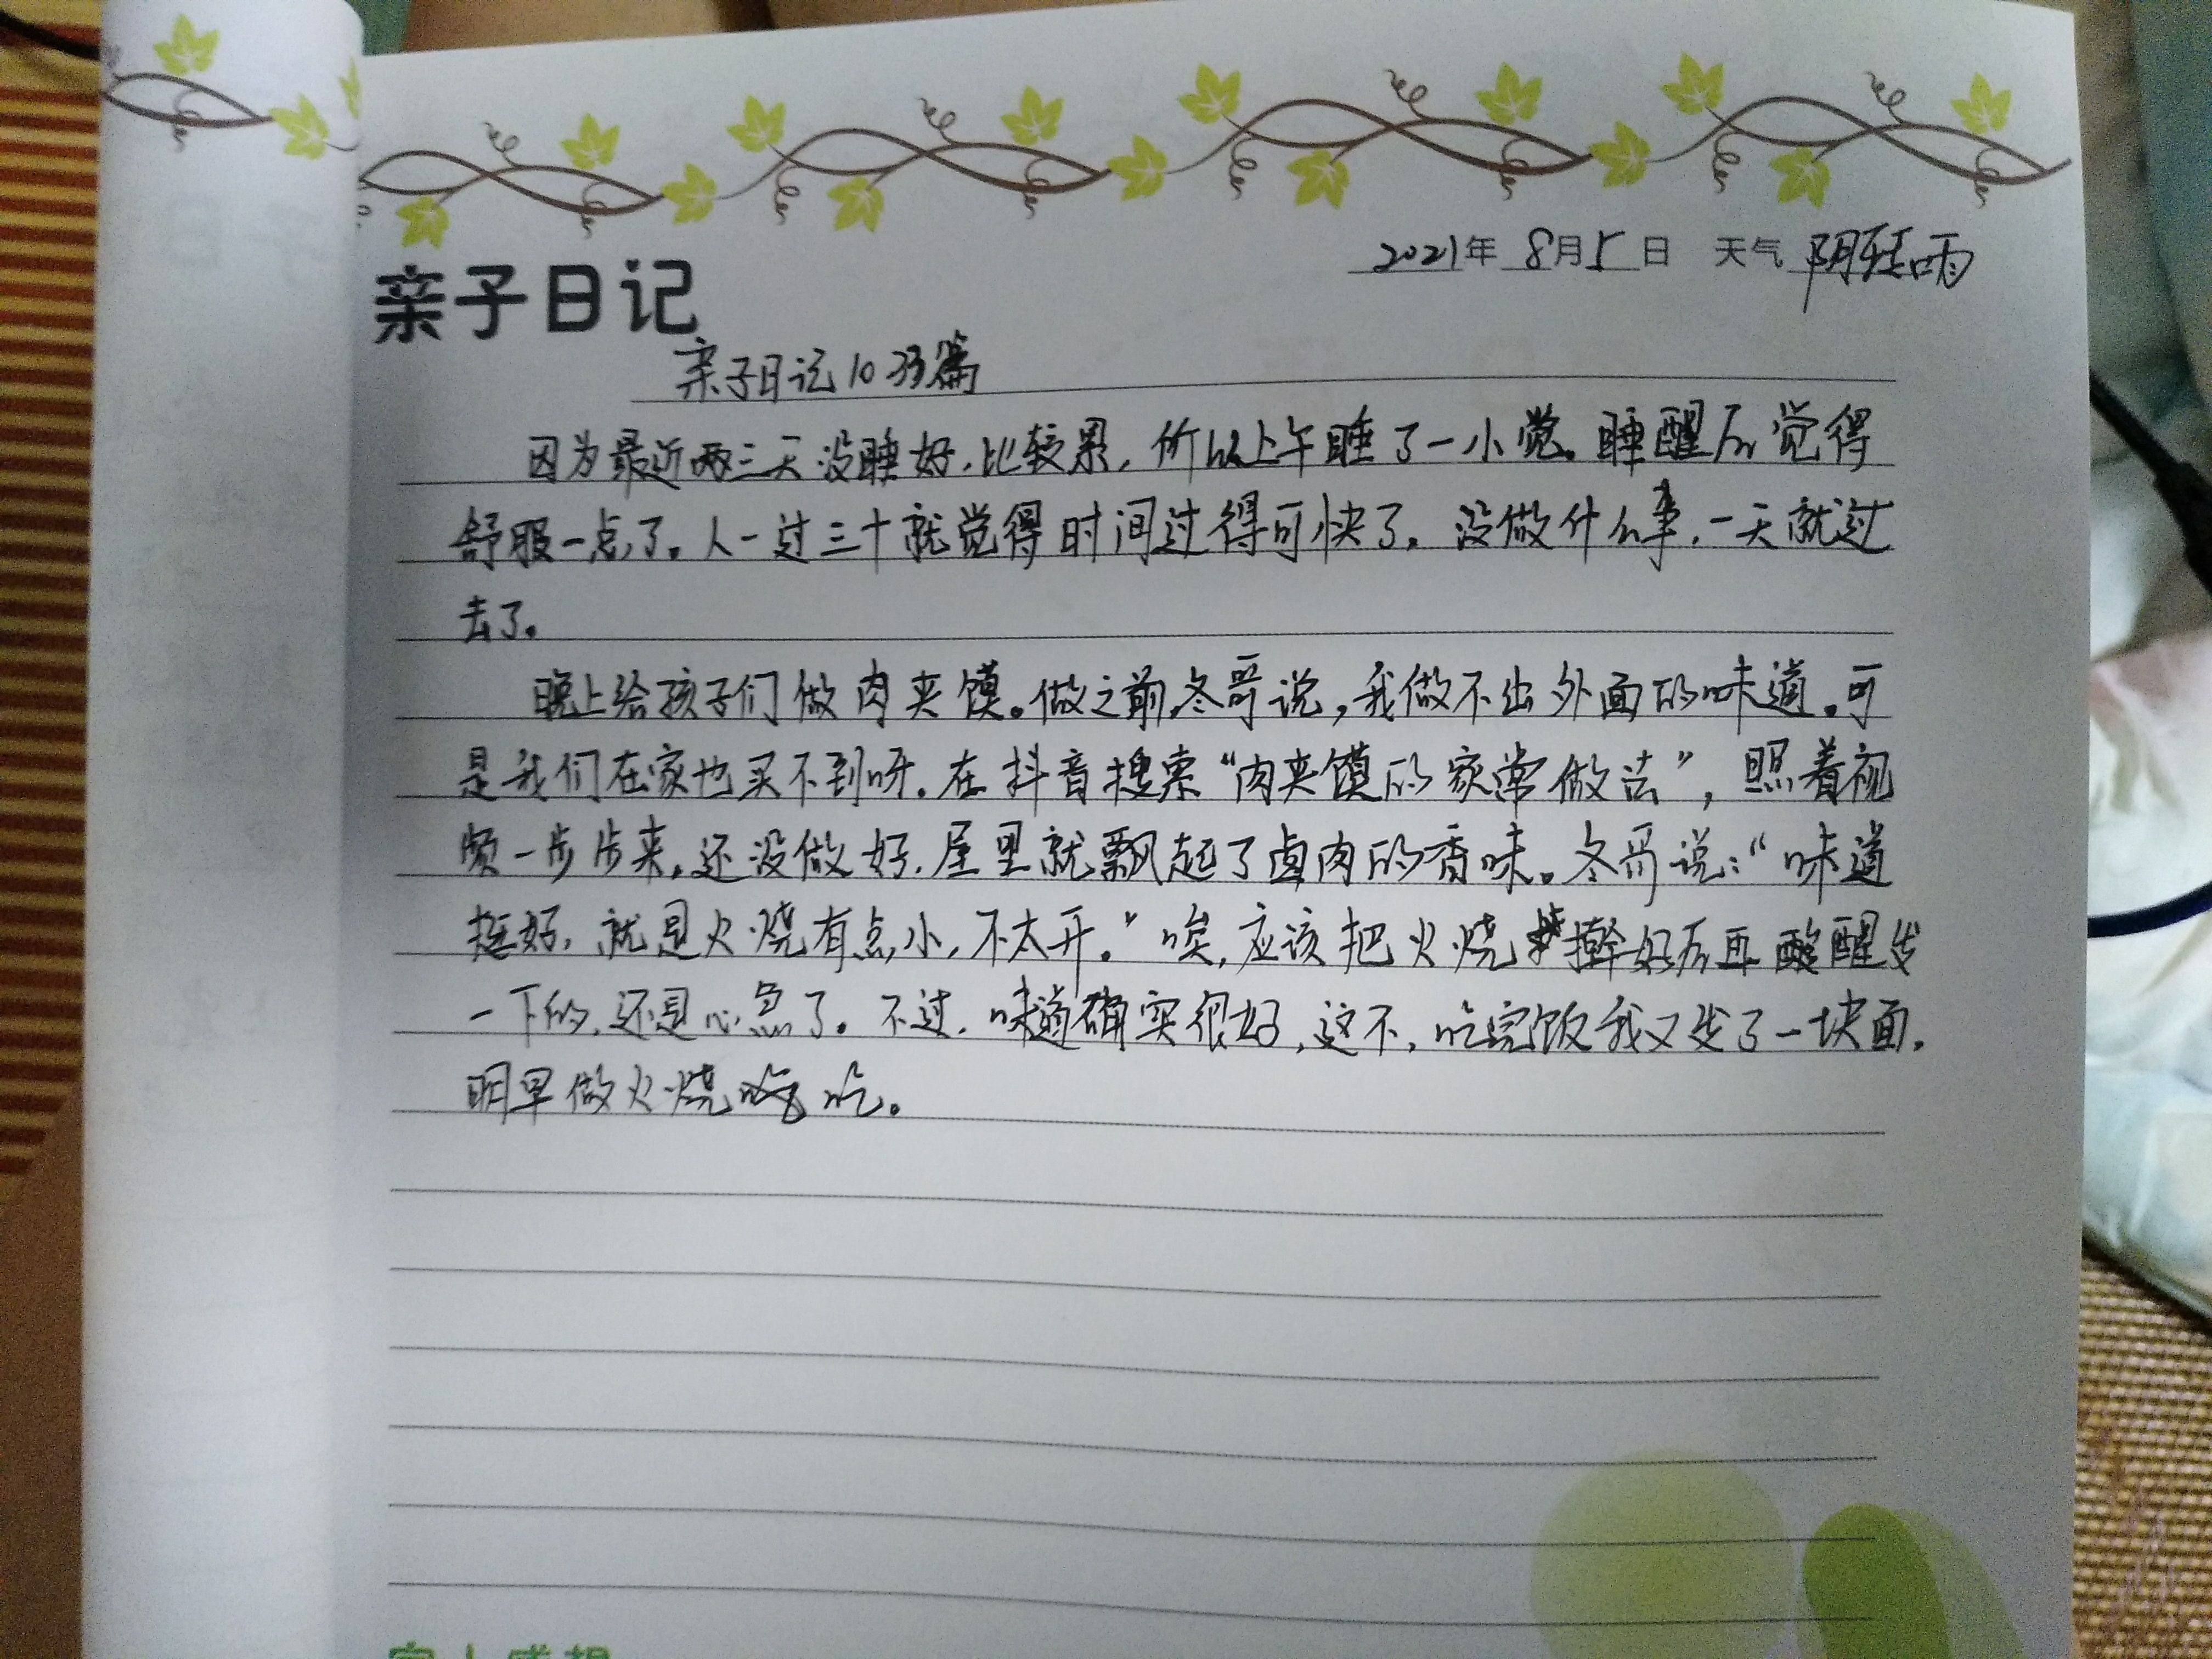 2021年 8月5日 天气 阴转雨
亲子日记
亲子日记1033篇
因为最近两三天没睡好.比较累,所以上午睡了一小觉。睡醒后觉得
舒服一点了。人一过三十就觉得时间过得可快了。没做什么事,一天就过
去了。
晚上给孩子们做肉夹馍。做之前,冬哥说,我做不出外面的味道。可
是我们在家也买不到呀。在抖音搜索“肉夹馍的家常做法”,照着视
频一步步来。还没做好,屋里就飘起了卤肉的香味。冬哥说:“味道
挺好,就是火烧有点小,不太开。”唉,应该把火烧擀好后再醒发
一下的,还是心急了。不过,味道确实很好,这不,吃完饭我又发了一块面,
明早做火烧吃。